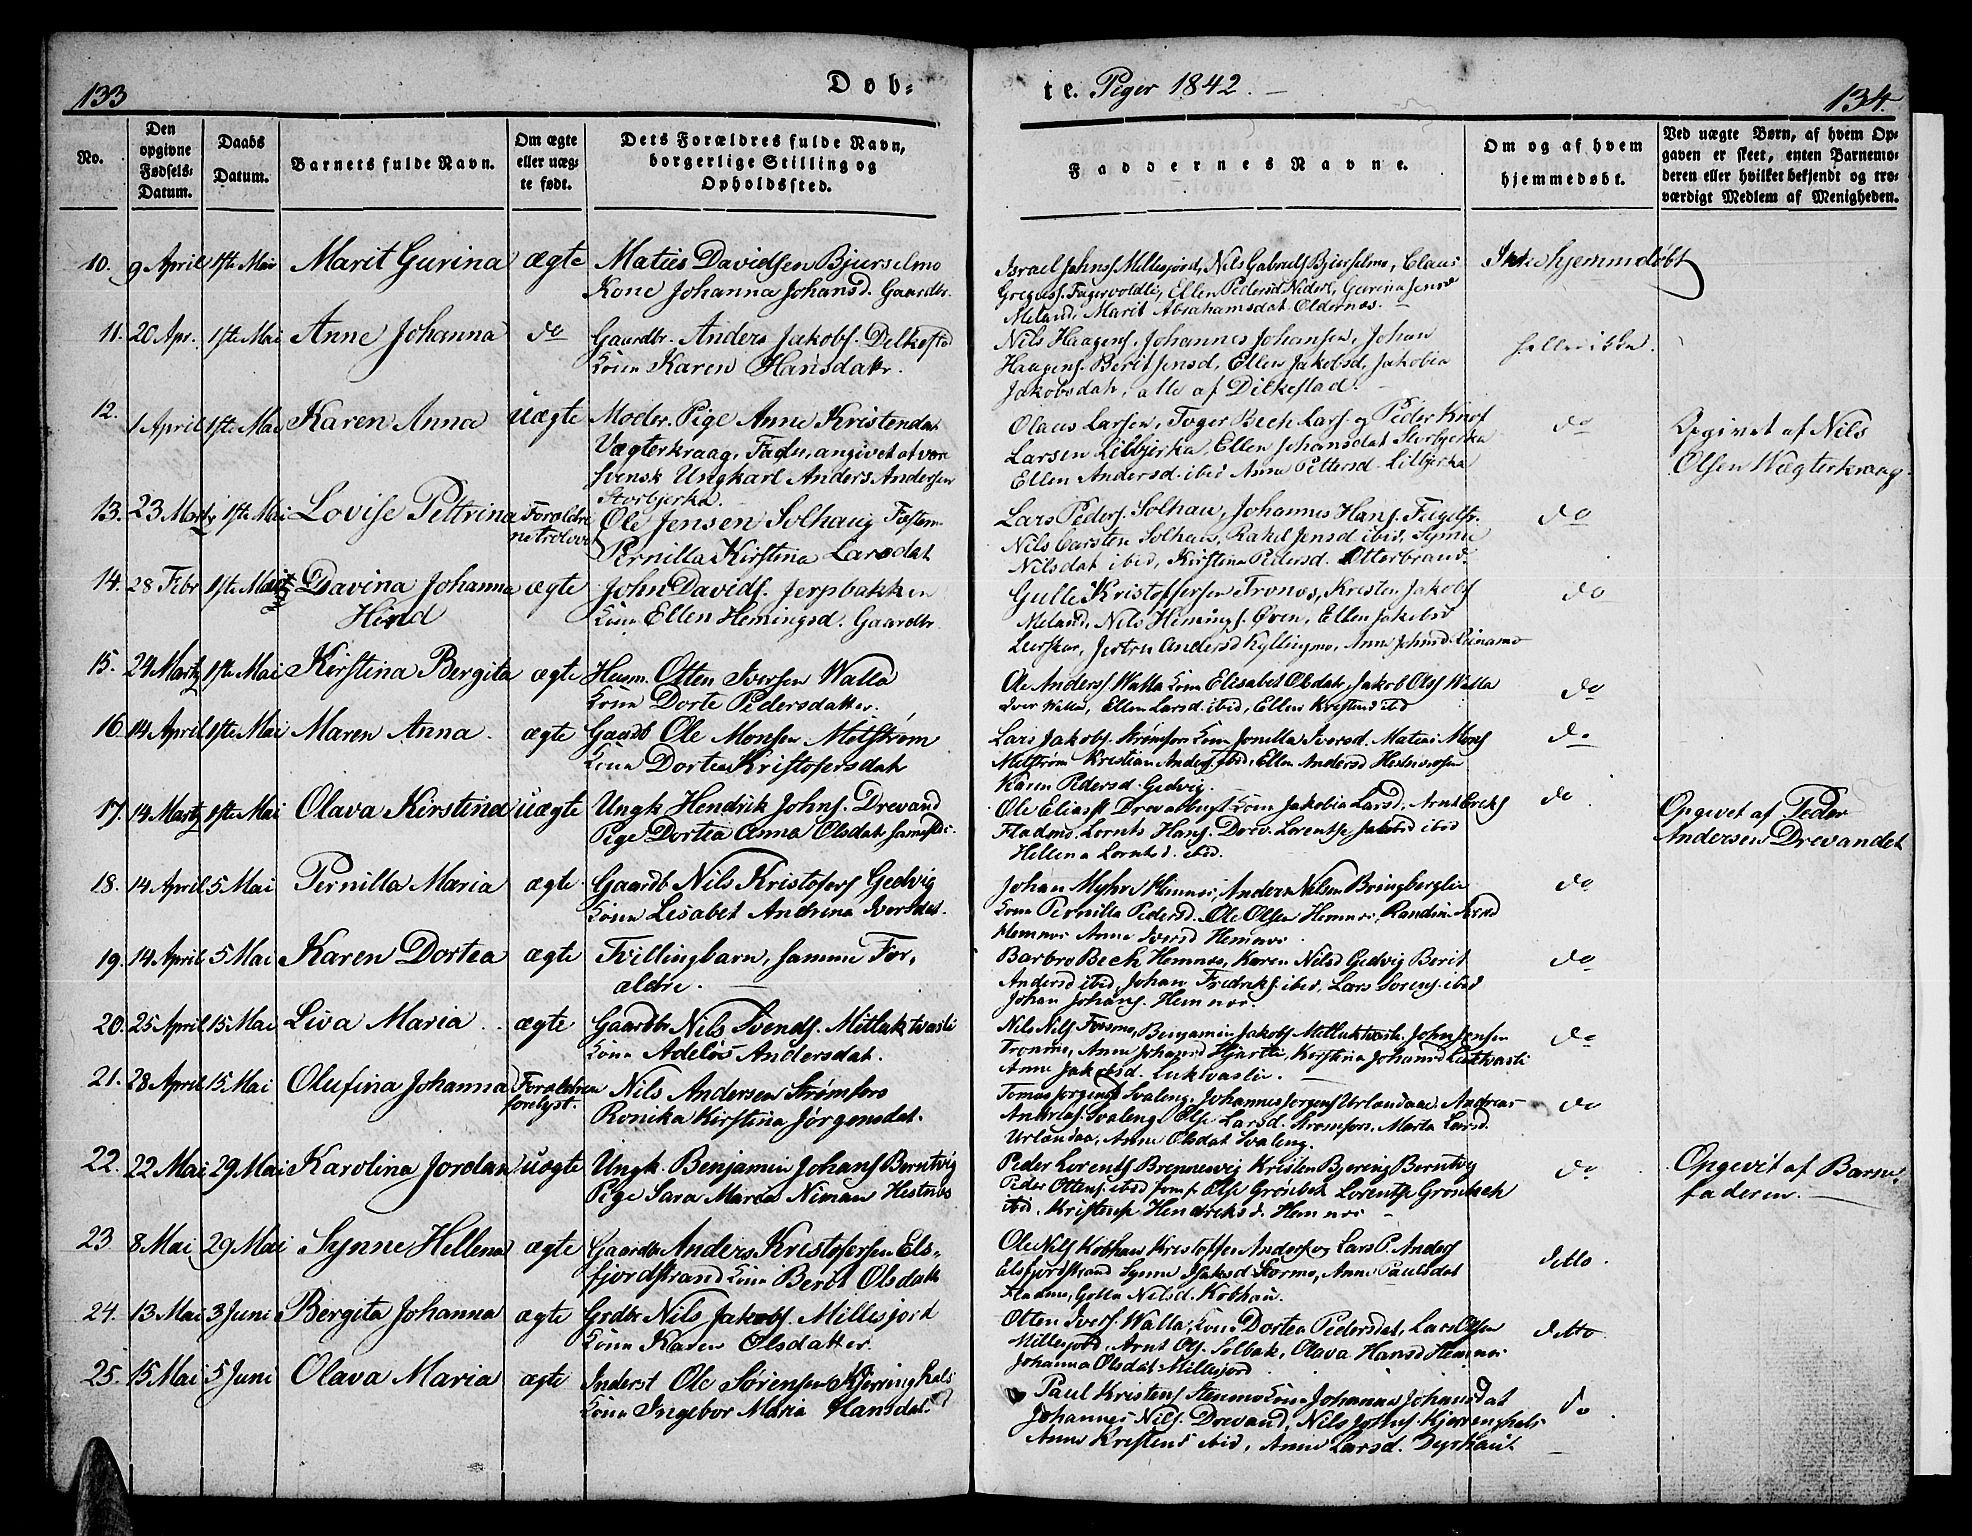 133
Døb-
te. Piger 1842.
134.
No.
Den opgivne Fødsels-Datum.
Daabs Datum.
Barnets fulde Navn.
Om ægte eller uægte født.
Dets Forældres fulde Navn, borgerlige Stilling og Opholdssted.
Faddernes Navne.
Om og af hvem hjemmedøbt.
Ved uægte Børn, af hvem Opgaven er skeet, enten Barnemoderen eller hvilket bekjendt og troværdigt Medlem af Menigheden.
10. 9 April 1ste Mai Marit Gurina ægte Maties Davidsen Bjurselmo
Kone Johanna Johansd. Gaardbr.
Israel Johns Millesjord, Nils Gabriels Bjurselmo, Claus
Ellen Pedersd
Marit Abrahamsdat Oldernæs.
Ikke hjemmdøbt
11. 20 Apr. 1ste Mai Anne Johanna do Gaardbr. Anders Jakobs.
Kona Karen Hansdatr.
Nils Haagens, Johannes Johansen, Johan
Haagens. Berit Jensd, Ellen Jakobsd, Jakobia
Jakobsdat, alle af Dilkestad.
heller ikke.
12. 1 April 1ste Mai Karen Anna uægte Moder, Pige Anne Kristensdat
Vægterkraag, Fader, angivet at være
svensk Ungkarl Anders Andersen
Storbjerka.
Olaus Larsen, Bech Lars og Peder
Larsen Lilbjerka, Ellen Johansdat Storbjerka
Ellen Andersd. ibid Anna Pettersd. Lilbjerka
do
Opgivet af Nils
Olsen Wægterkraag.
13. 23 Marty 1ste Mai Lovise Pettrina Forældre
ne trolovet
Ole Jensen Solhaug
Pernilla Kirstina Larsdat
Lars Peders. Solhau, Johannes Hans.
Nils Carsten Solhau, Rakel Jensd ibid, Synne
Nilsdat ibid, Kirstina Pedersd. Otterbrand.
do
14. 28 Febr 1ste Mai Davina Johanna ægte John Davids. Jerpbakken
Hind
Kona Ellen Hemingsd. Gaardbr.
Gulle Kristoffersen Tronæs, Kresten Jakobs
Meland, Nils Hemings. Øren, Ellen Jakobsd
Andersd Kyllingmo, Anne Johnsd. Leinamo
do
15. 24 Marty 1ste Mai Kirstina Bergita ægte Husm. Otten Iversen Walla
Kona Dorte Pedersdatter.
Ole Anders. Walla Kona Elisabet Olsdat, Jakob Ols Walla
Iver Walla, Ellen Larsd. ibid, Ellen Kristensd ibid
do
16. 14 April 1ste Mai Maren Anna. ægte Gaardb Ole Monsen Mølstrøm
Kona Dortea Kristofersdat
Lars Jakobs. Strømfors Kona Jonilla Iversd. Matias Mons
Kristian Anders ibid, Ellen Andersd
Karen Pedersd. Gedvig.
do
17. 14 Marty 1ste Mai Olava Kirstina uægte Ungk. Hendrik Johns. Drevand
Pige Dortea Anna Olsdat
Ole Eliass Kona Jakobia Larsd. Arnt
Fladmo. Lornts Hans. Drev. Lorentse Jakobsd ibid
Hellena Lorntsd. ibid.
do
Opgevet af Peder
Andersen Drevandet
18. 14 April 5 Mai Pernilla Maria ægte Gaardb Nils Kristofers Gedvig
Kona Lisabet Andrina Iversdat.
Johan Myhre Hemnes, Anders Nilsen Bringberglie
Kona Pernilla Pedersd. Ole Olsen Hemnes, Randine
Hemnes Anne Iversd Hemnes.
do
19. 14 April 5 Mai Karen Dortea ægte Tvillingbarn, samme For,
ældre.
Barbro Bech Hemnes, Karen Nilsd Gedvig Berit
Andersd ibid, Johan Fredriks. ibid, Lars Sorens. ibid
Johan Johans. Hemnes.
do
20. 25 April 15 Mai Liva Maria ægte Gaardbr Nils Svends. Mitluktvasli
Kona Adeløs Andersdat.
Nils Nils Forsmo, Benjamin Jakobs Johs Jensen
Anne Johansd Hjartli, Kirstina Johansd
Anne Jakobsd. Luktvaslie.
do
21. 28 April 15 Mai Olufina Johanna Forældren
forelyst.
Nils Andersen Strømfors
Ronika Kirstina Jørgensdat.
Tomas Jorgens Svaleng, Johannes Jorgens Urlandaa. Andreas
Andreas. Svaleng, Else Larsd. Strømfors, Marta Larsd.
Urlandaa, Anne Olsdat Svaleng.
do
22. 22 Mai 29 Mai Karolina Jordan uægte Ungk. Benjamin Johans Berntvig
Pige Sara Maria Niman Hestnes
Peder Lorents Brennesvig Kristen Bjering Berntvig
Peder Ottens. ibid Else Grønbek Lorentse Gronbech
ibid, Kristense Hendriksd. Hemnes
do
Opgevit af Barne-
faderen.
23. 8 Mai 29 Mai Synne Hellena ægte Gaardbr Anders Kristofersen Els-
fjordstrand Kona Berit Olsdatr
Ole Nils Kobhau Kristoffer Anders og Lars P. Anders
Elsfjordstrand Synne Isaksd. Anne Paulsdat
Fladmo, Golla Nilsd. Kobhau.
ditto.
24. 13 Mai 3 Juni Bergita Johanna ægte Grdbr Nils Jakobs. Millesjord
Kona Karen Olsdatter.
Otten Ivers. Walla, Kona Dortea Pedersdat, Lars Olsen
Millesjord, Arnt Ols. Solbak, Olava Hansd Hemnes
Johanna Olsdat Millesjord.
ditto.
25. 15 Mai 5 Juni Olava Maria ægte Inderst Ole Sørensen Kjerringhals
Kona Ingebor Maria Hansdat.
Paul Kristens Stenmo Kona Johanna Johansdat
Johannes Nils. Drevand, Nils Johns. Kjerringhals
Anne Kristensd ibid, Anne Larsd. Dyrhaut
do